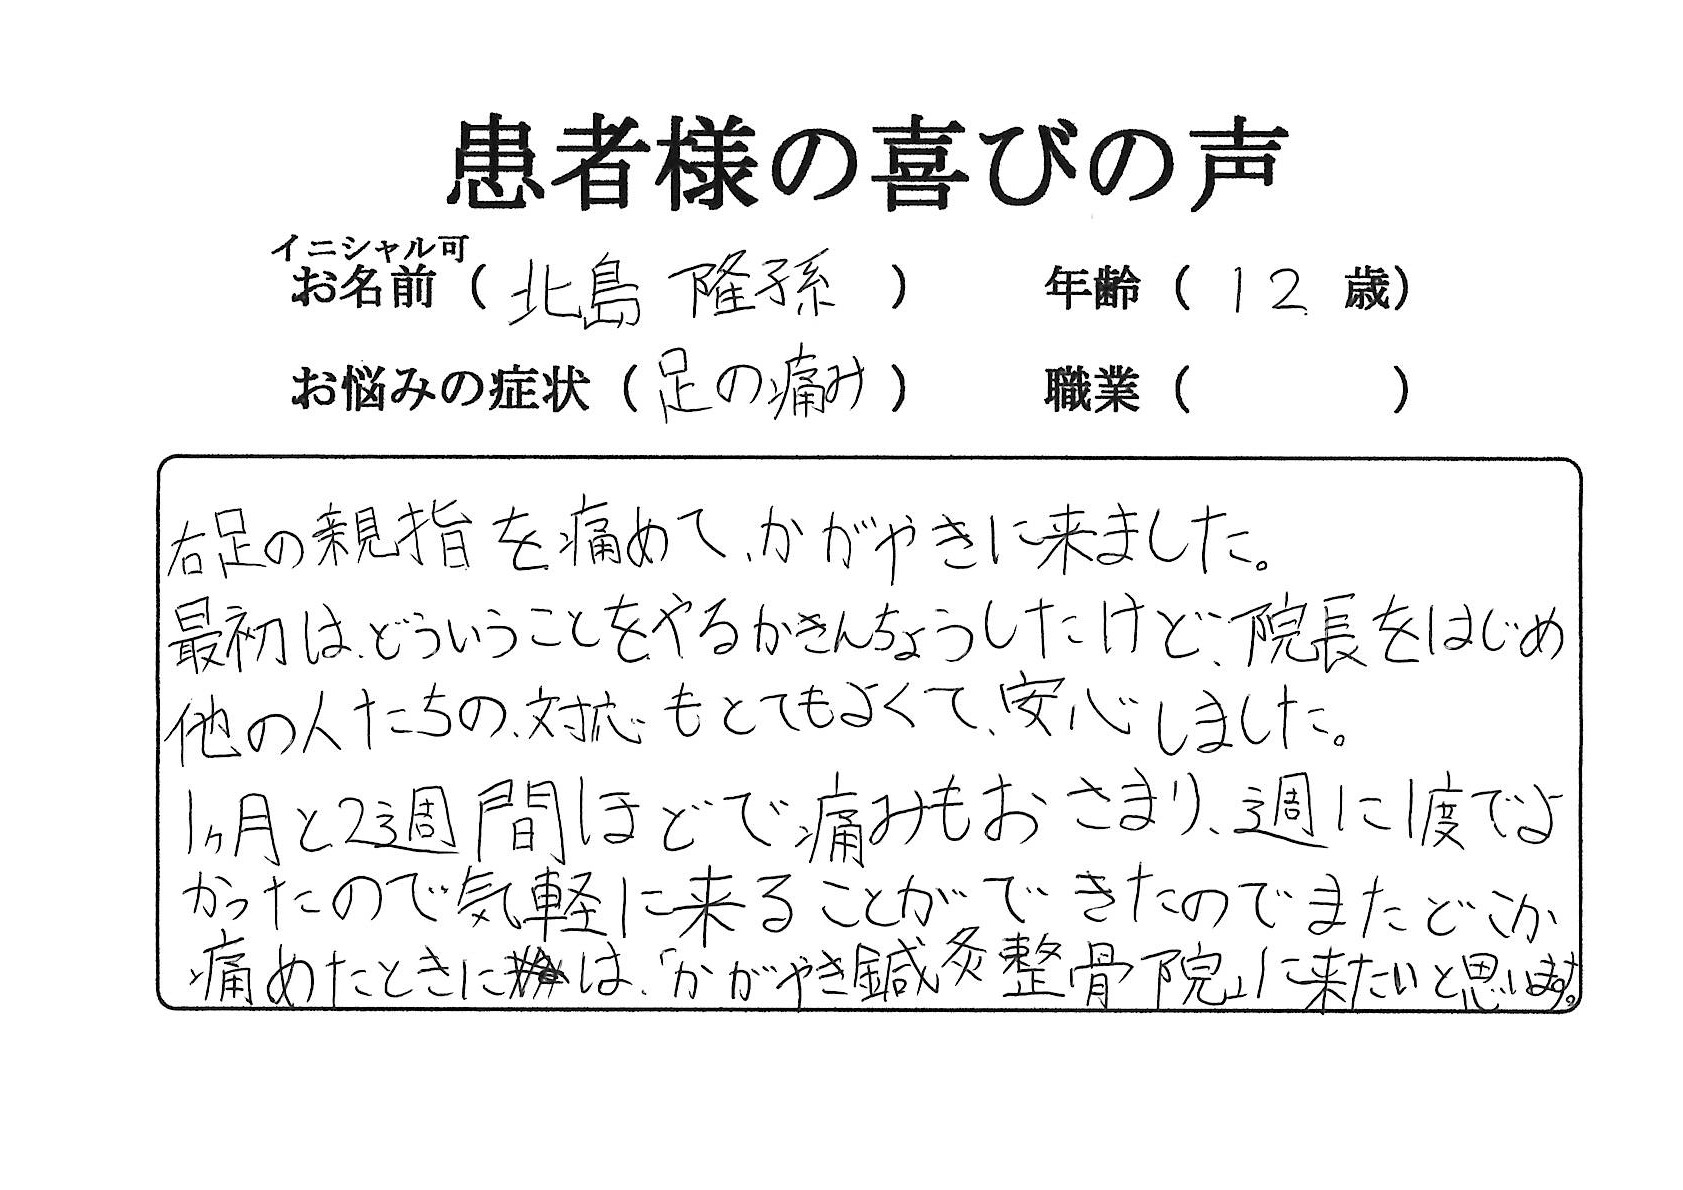 患者様の喜びの声
イニシャル可
お名前（北島 隆孫） 年齢（12歳）
お悩みの症状（足の痛み） 職業（ ）
右足の親指を痛めて、かがやきに来ました。
最初は、どういうことをやるかきんちょうしたけど、院長をはじめ
他の人たちの、対応もとてもよくて、安心しました。
1ヶ月と2週間ほどで痛みもおさまり、週に1度でよ
かったので気軽に来ることができたのでまたどこか
痛めたときには、「かがやき鍼灸整骨院」に来たいと思います。